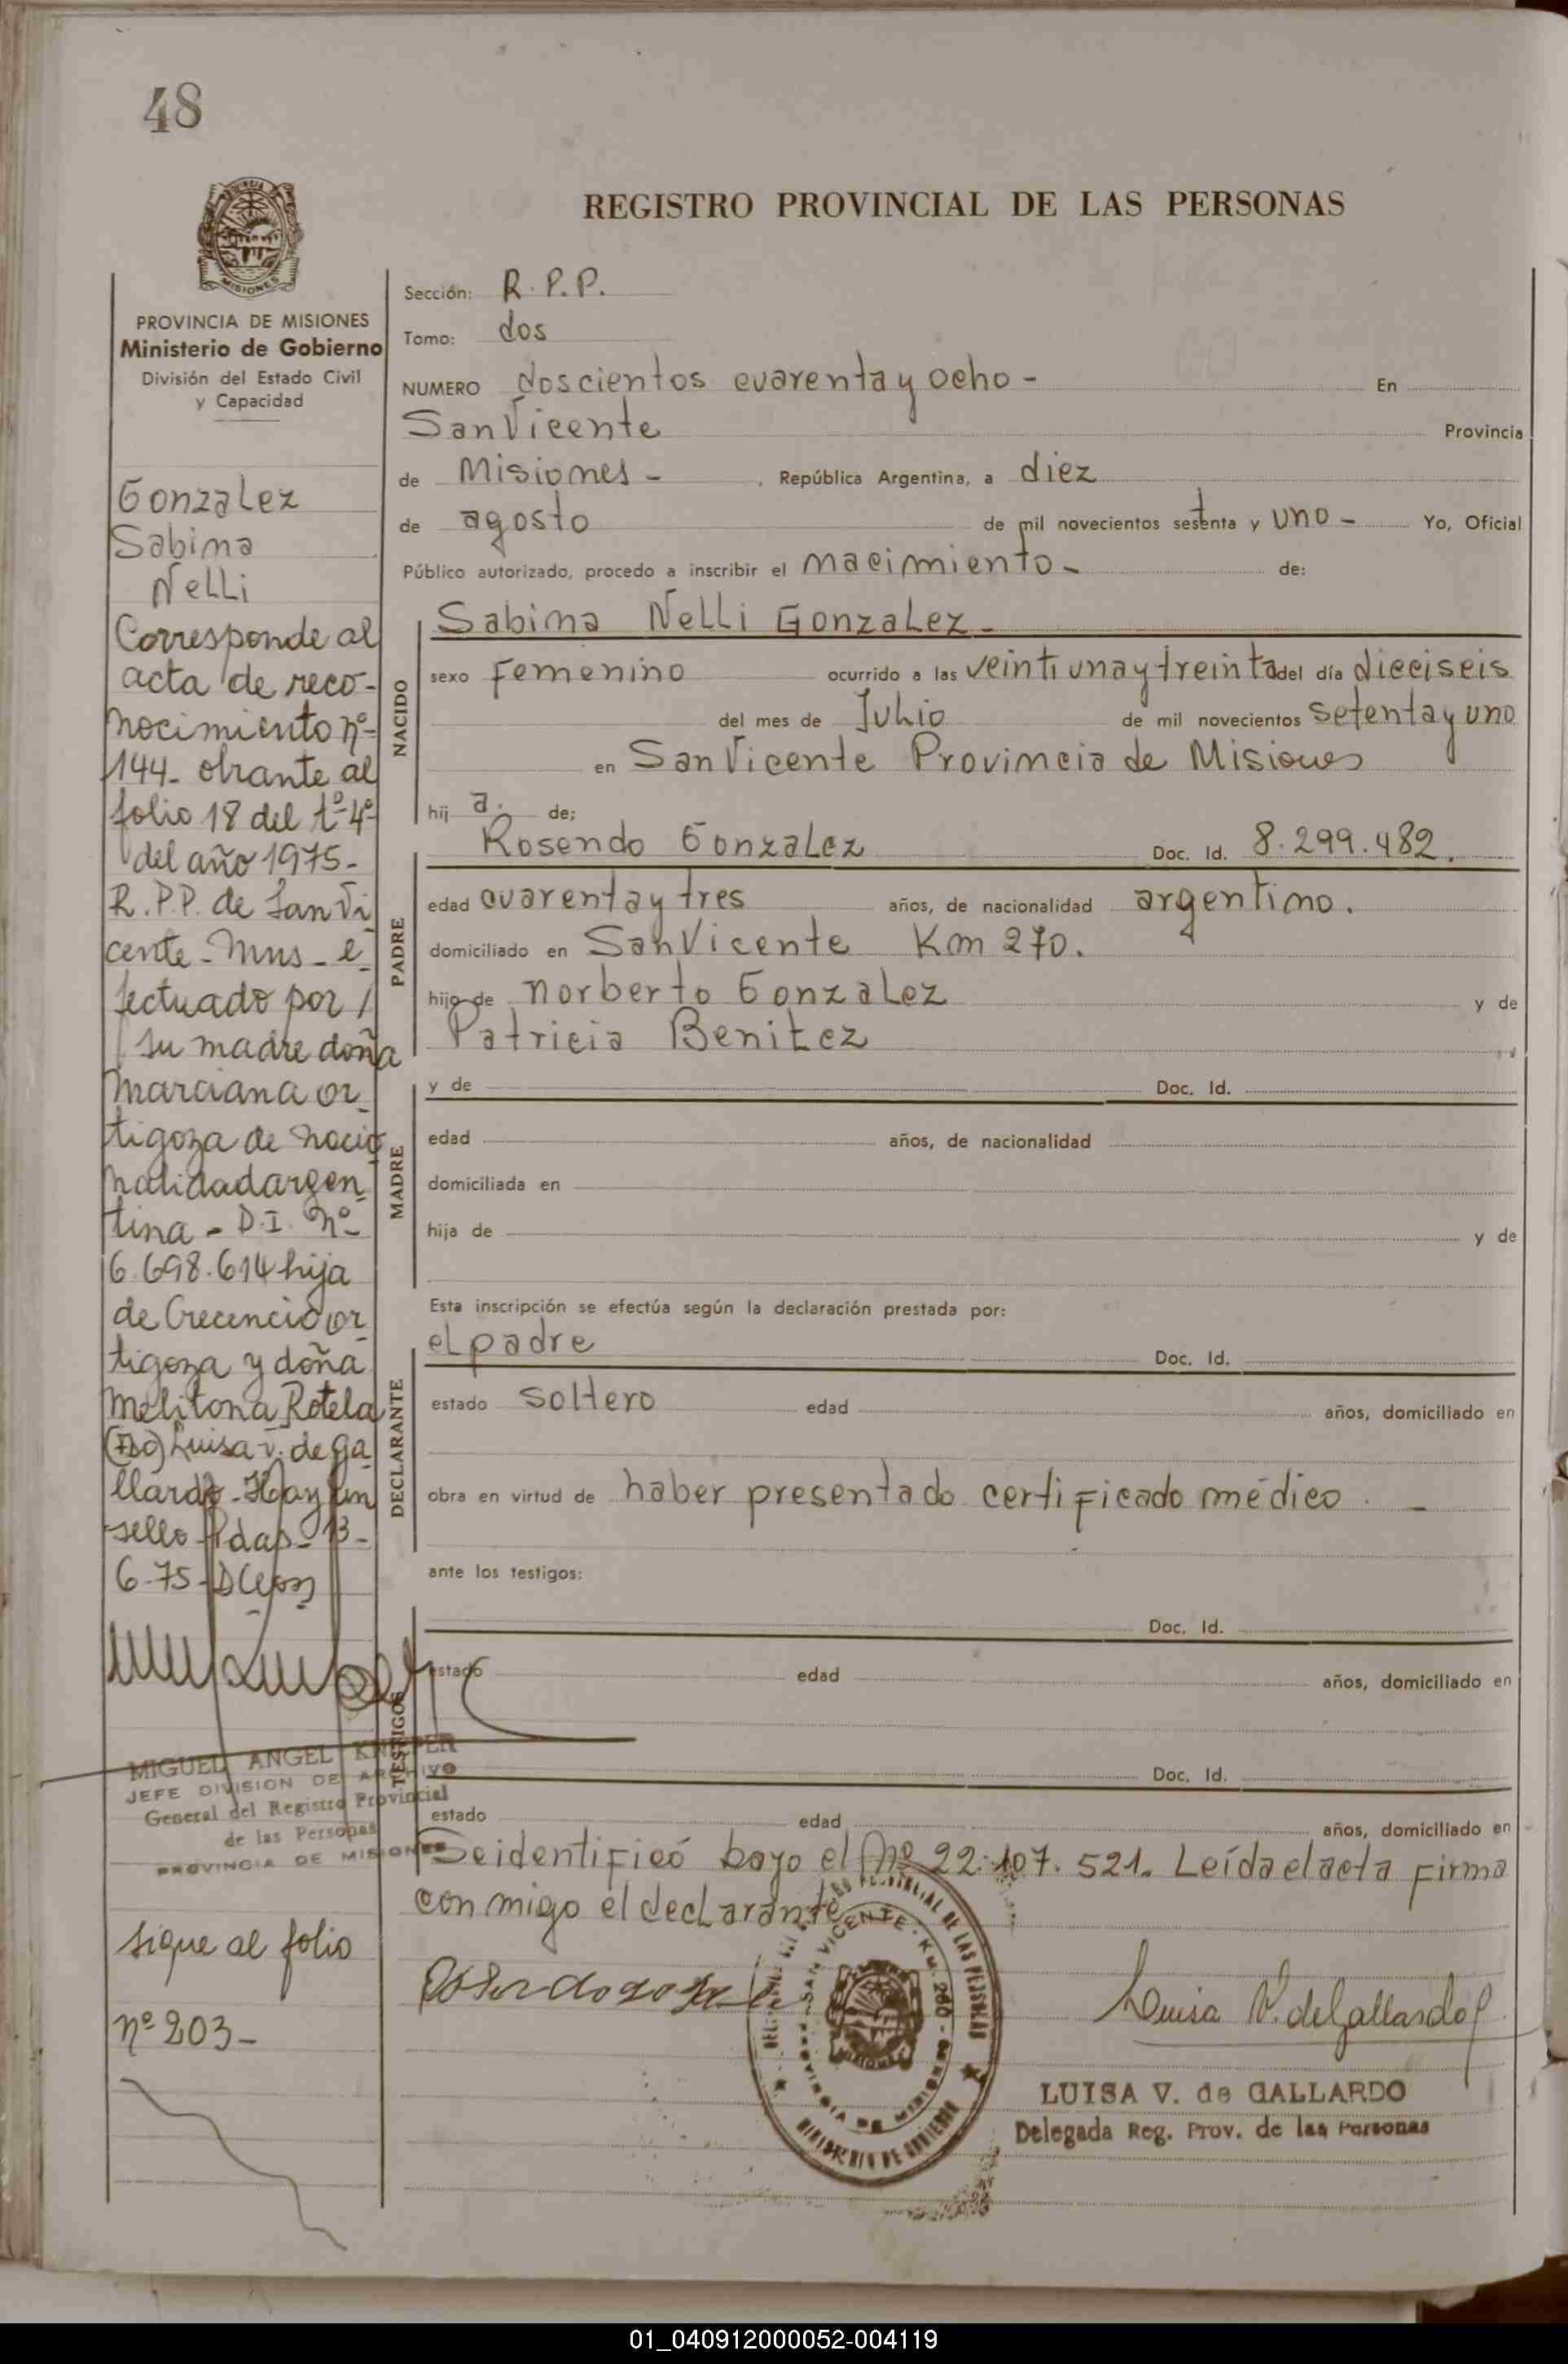 48
REGISTRO PROVINCIAL DE LAS PERSONAS
MISIONES
PROVINCIA DE MISIONES
Ministerio de Gobierno
División del Estado Civil
y Capacidad
Gonzalez
Sabina
Nelli
Corresponde al
acta de reco-
nocimiento nº
144- obrante al
folio 18 del tº 4º
del año 1975-
R.P.P. de San Vi
cente - Mns - e
fectuado por /
su madre doña
Marciana Or
tigoza de nacio
nalidad argen
tina - D.I. Nº
6.698.614 hija
de Crecencio Or
tigoza y doña
Melitona Rotela
(Fdo) Luisa V. de Ga
llardo - Hay un
sello - Pdas - 13 -
6-75 -
MIGUEL ANGEL KNEPPER
JEFE DIVISION DE ARCHIVO
General del Registro Provincial
de las Personas
PROVINCIA DE MISIONES
sigue al folio
nº 203-
Sección: R.P.P.
Tomo: dos
NUMERO doscientos cuarenta y ocho - En
San Vicente Provincia
de Misiones - , República Argentina, a diez
de agosto de mil novecientos setenta y uno - Yo, Oficial
Público autorizado, procedo a inscribir el nacimiento - de:
NACIDO
Sabina Nelli Gonzalez -
sexo Femenino ocurrido a las veintiuna y treinta del día dieciseis
del mes de Julio de mil novecientos setenta y uno
en San Vicente Provincia de Misiones
hij a. de;
PADRE
Rosendo Gonzalez Doc. Id. 8.299.482.
edad cuarenta y tres años, de nacionalidad argentino.
domiciliado en San Vicente Km 270.
hijo de Norberto Gonzalez y de
Patricia Benitez
MADRE
y de Doc. Id.
edad años, de nacionalidad
domiciliada en
hija de y de
Esta inscripción se efectúa según la declaración prestada por:
DECLARANTE
el padre Doc. Id.
estado soltero edad años, domiciliado en
obra en virtud de haber presentado certificado médico. -
ante los testigos:
TESTIGOS
Doc. Id.
estado edad años, domiciliado en
Doc. Id.
estado edad años, domiciliado en
Se identificó bajo el Nº 22.107.521. Leída el acta firma
conmigo el declarante
Luisa V. de Gallardo
LUISA V. de GALLARDO
Delegada Reg. Prov. de las Personas
SAN VICENTE - KM. 280 - PROVINCIA DE MISIONES
MINISTERIO DE GOBIERNO
01_040912000052-004119